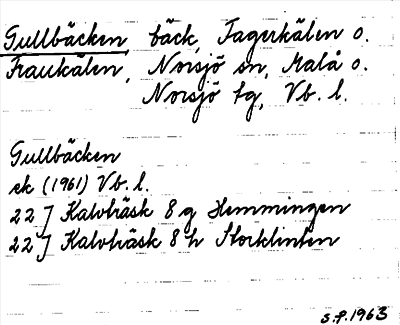 Gullbäcken, bäck, Fagerkälen o.
Fraukälen, Norsjö sn, Malå o.
Norsjö tg, Vb. l.
Gullbäcken
ek (1961) Vb. l.
22 J Kalvträsk 8 g Hemmingen
22 J Kalvträsk 8 h Storklinten
S.P. 1963